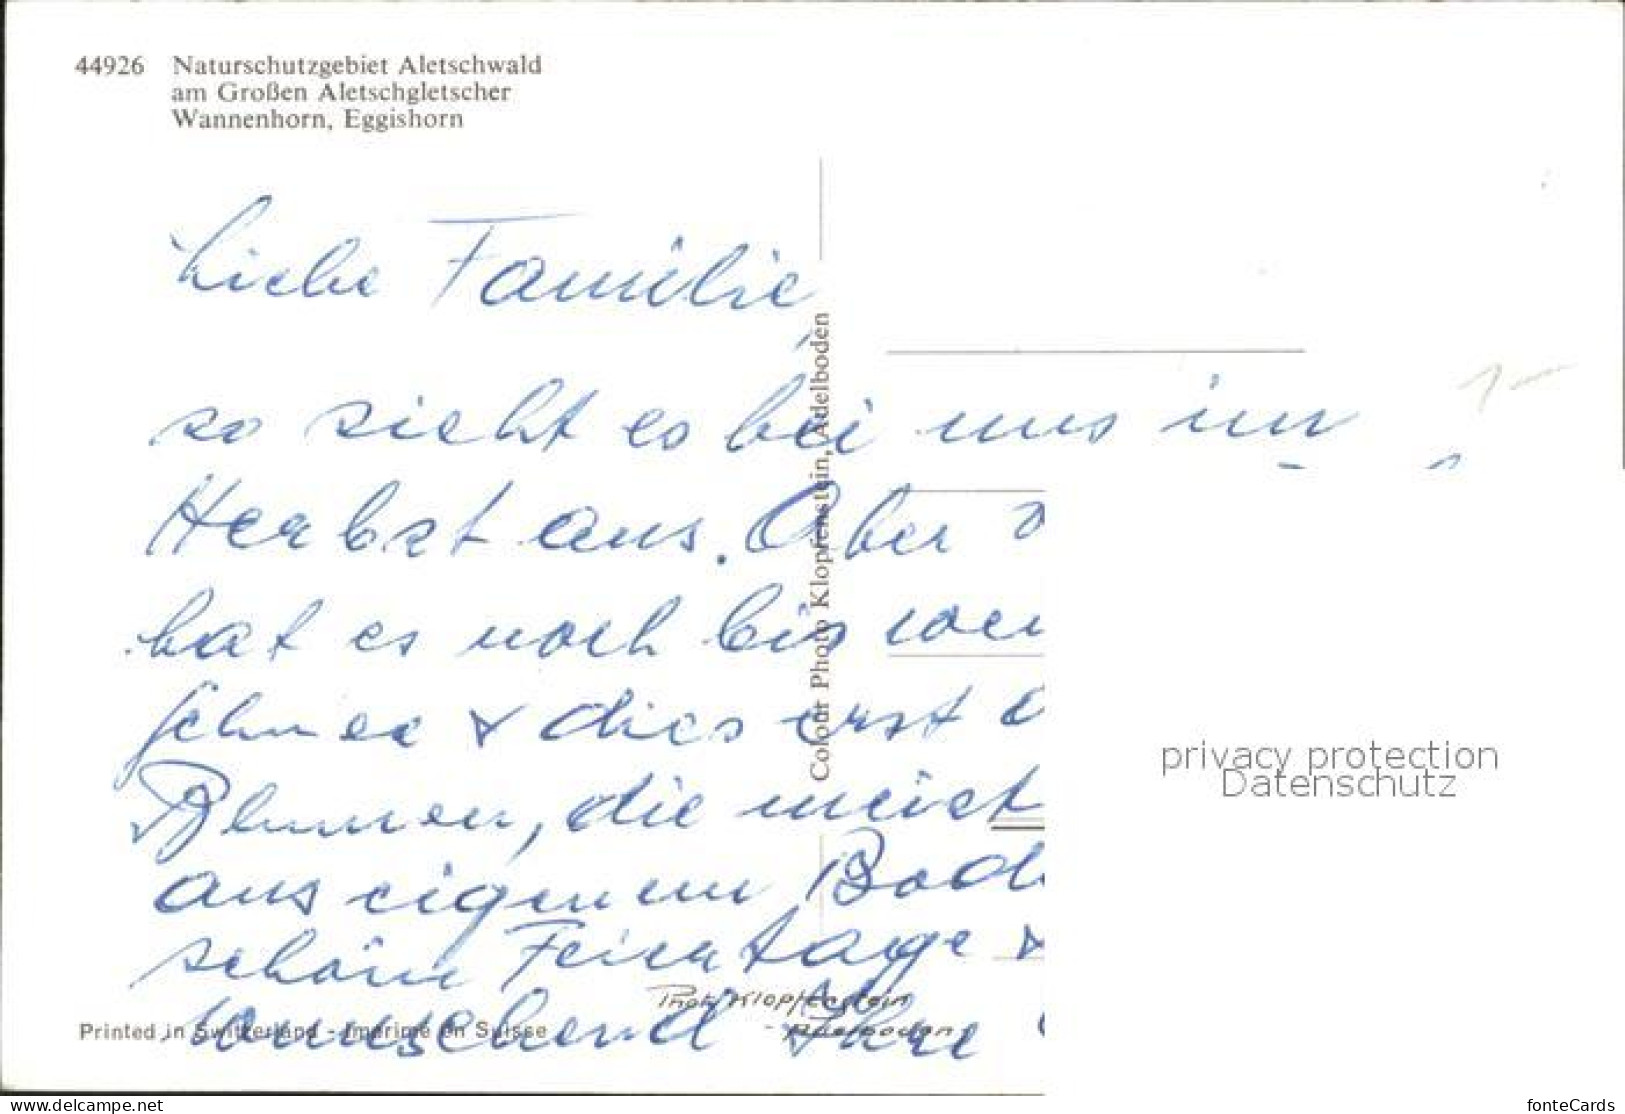 44926 Naturschutzgebiet Aletschwald
am Großen Aletschgletscher
Wannenhorn, Eggishorn
Liebe Familie,
so sieht es bei uns im
Herbst aus. Aber
hat es noch bis
Schnee & dies erst
Blumen, die meist
aus eigenem Bod
schöne Feiertage &
wünschend Ihre
Colour Photo Klopfenstein, Adelboden
Phot. Klopfenstein
- Adelboden
Printed in Switzerland - Imprimé en Suisse
privacy protection
Datenschutz
www.delcampe.net
fonteCards